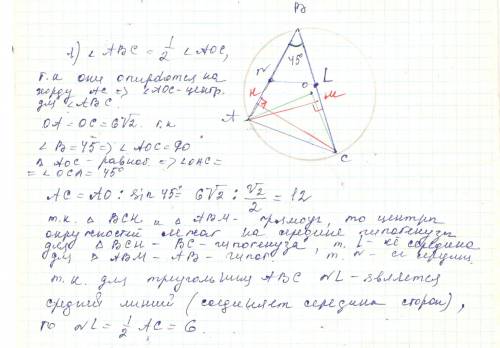 1) ∠ABC = 1/2 ∠AOC,
т.к они опираются на
хорду AC => ∠AOC-центр.
для ∠ABC.
OA = OC = 6√2. т.к
∠B = 45 => ∠AOC = 90
△ AOC - равноб => ∠OAC =
= ∠OCA = 45°
AC = AO : sin 45° = 6√2 : √2/2 = 12
т.к. △ BCH и △ ABM - прямоуг, то центры
окружностей лежат на середине гипотенузы
для △ BCH - BC - гипотенуза, т. L - её середина
для △ ABM - AB - гипот. т. N - её середин.
т.к. для треугольника ABC NL - является
средней линией (соединяет середины сторон),
то NL = 1/2 AC = 6.
B
45°
N
L
H
O
M
A
C